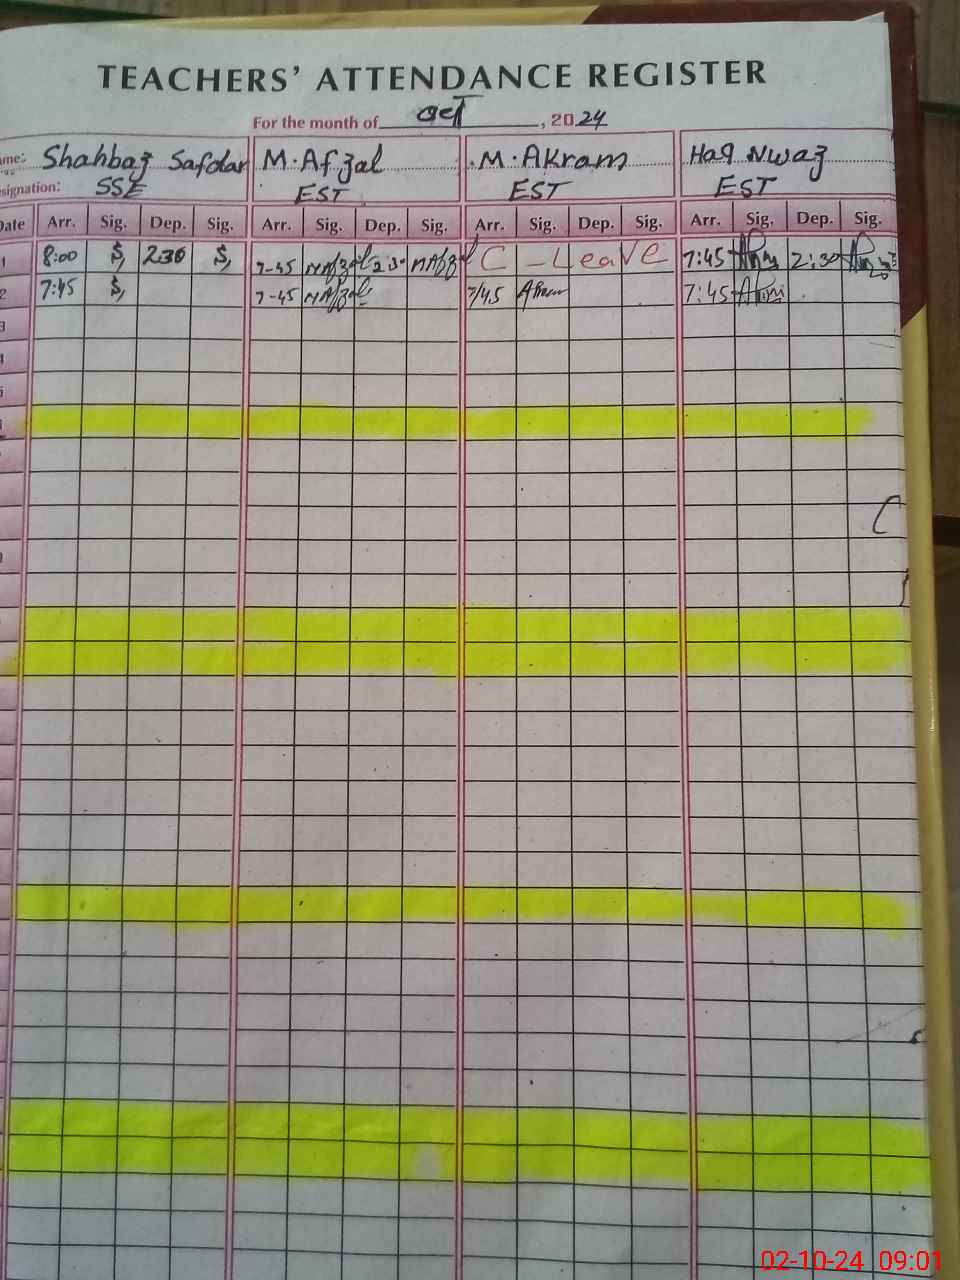 TEACHERS' ATTENDANCE REGISTER
For the month of Oct, 2024
ame: Shahbaz Safdar M.Afzal M.Akram Haq Nwaz
signation: SSE EST EST EST
Date Arr. Sig. Dep. Sig. Arr. Sig. Dep. Sig. Arr. Sig. Dep. Sig. Arr. Sig. Dep. Sig.
1 8:00 2:30 7-45 MAfzal 2:30 MAfzal C-Leave 7:45 2:30
2 7:45 7-45 MAfzal 7/45 Akram 7:45
3
4
5
02-10-24 09:01